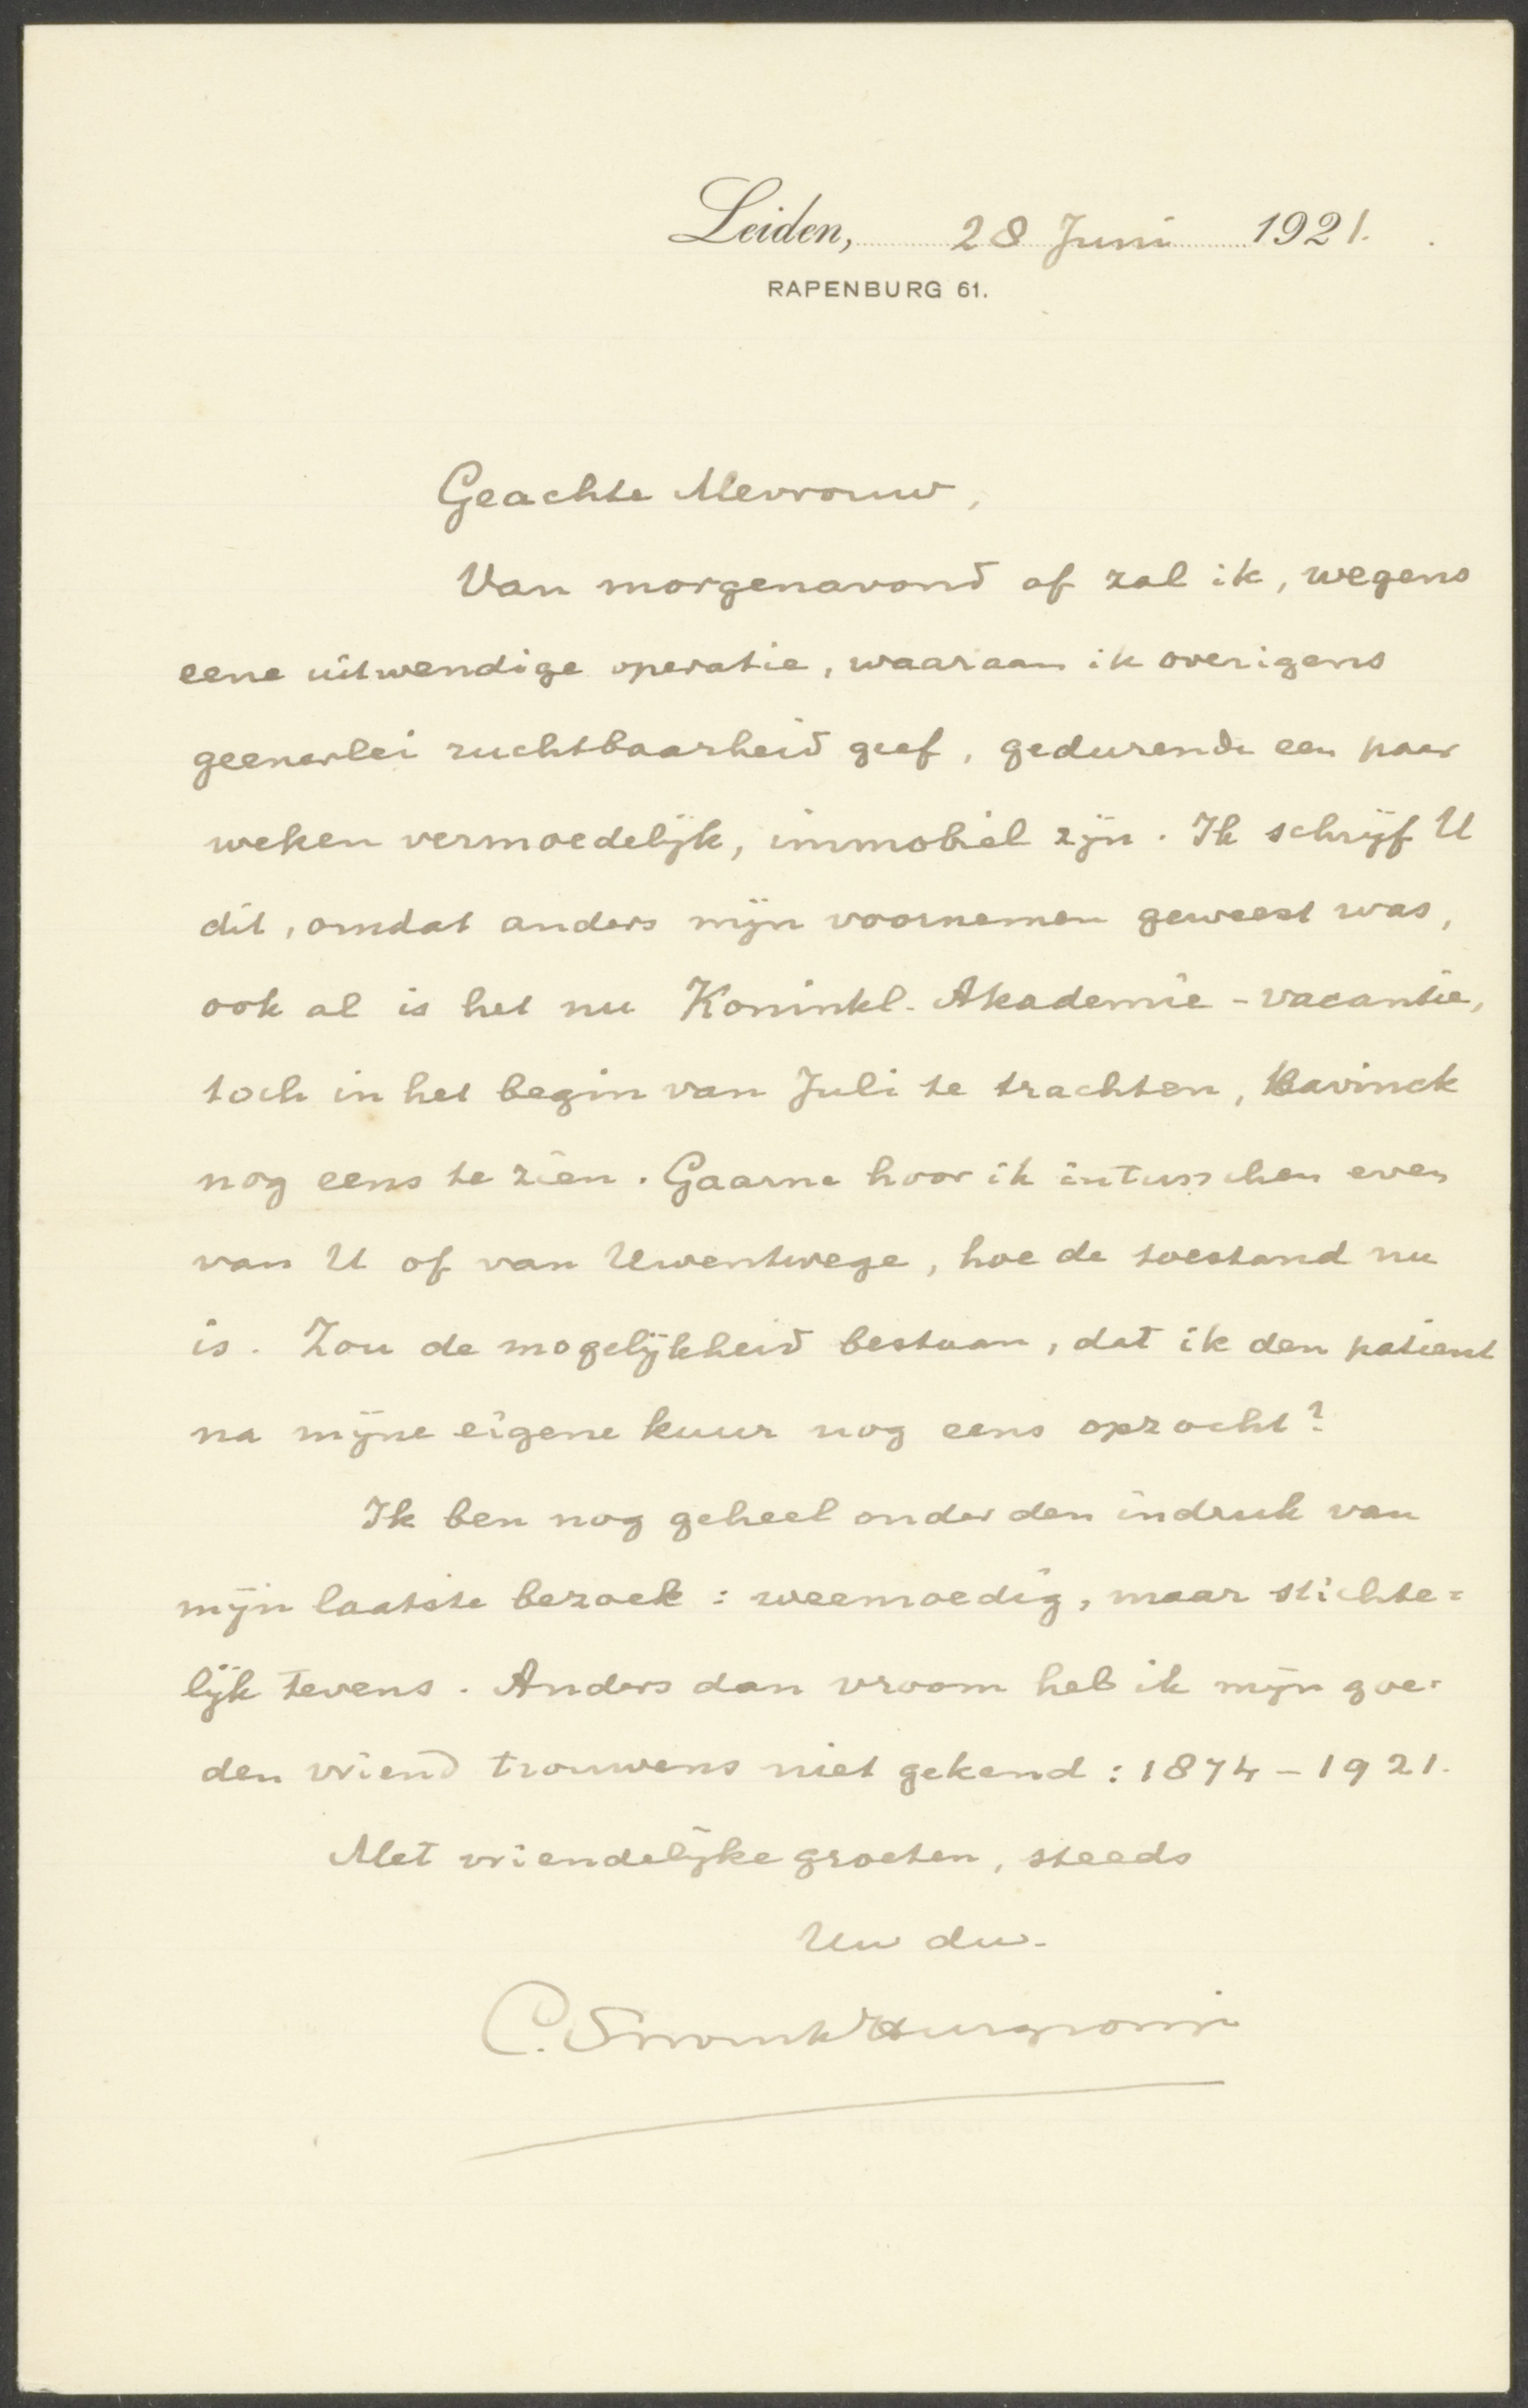 Leiden, 28 Juni 1921.
RAPENBURG 61.
Geachte Mevrouw,
Van morgenavond af zal ik, wegens
eene uitwendige operatie, waaraan ik overigens
geenerlei ruchtbaarheid geef, gedurende een paar
weken vermoedelijk, immobiel zijn. Ik schrijf U
dit, omdat anders mijn voornemen geweest was,
ook al is het nu Koninkl. Akademie-vacantie,
toch in het begin van Juli te trachten, Bavinck
nog eens te zien. Gaarne hoor ik intusschen even
van U of van Uwentwege, hoe de toestand nu
is. Zou de mogelijkheid bestaan, dat ik den patient
na mijne eigene kuur nog eens opzocht?
Ik ben nog geheel onder den indruk van
mijn laatste bezoek: weemoedig, maar stichte=
lijk tevens. Anders dan vroom heb ik mijn goe=
den vriend trouwens niet gekend: 1874-1921.
Met vriendelijke groeten, steeds
Uw dw.
C. Snouck Hurgronje